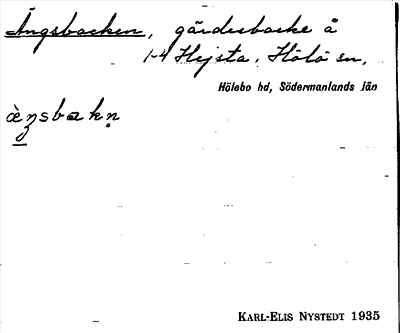 Ängsbacken, gärdesbacke å
1-4 Hejsta, Hölö sn,
Hölebo hd, Södermanlands län
KARL-ELIS NYSTEDT 1935